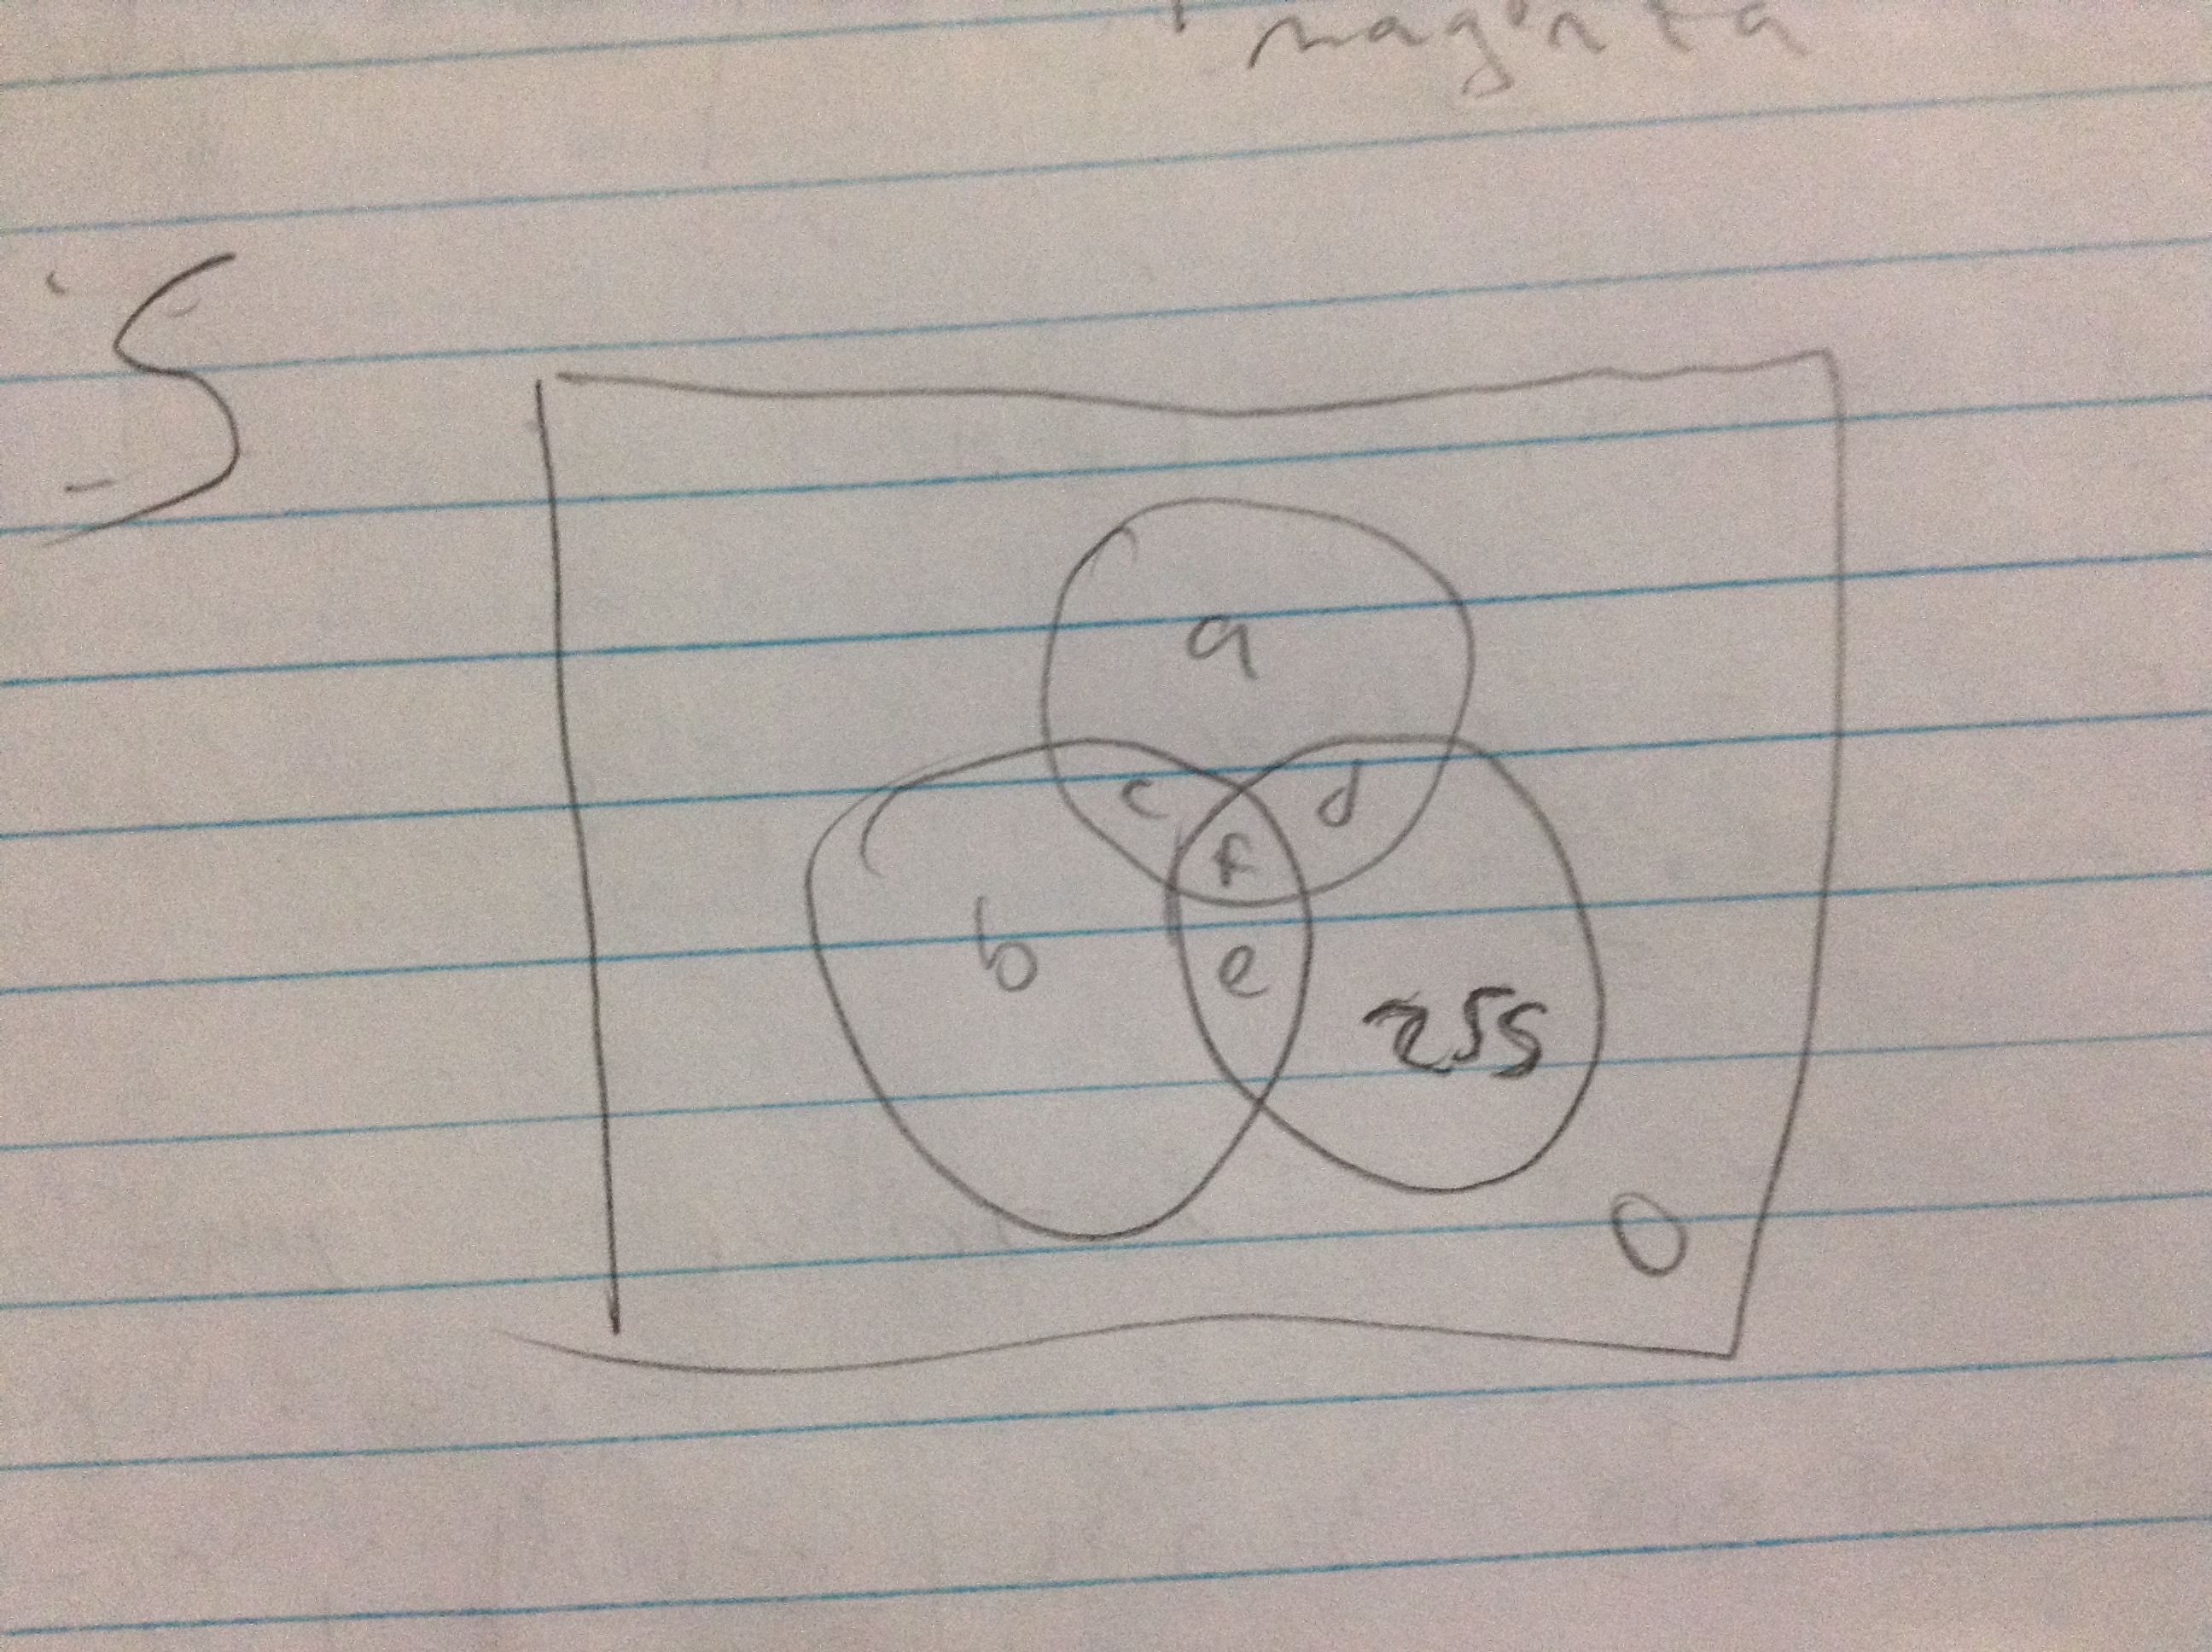 maginta
5
a
c d
f
b e 255
0